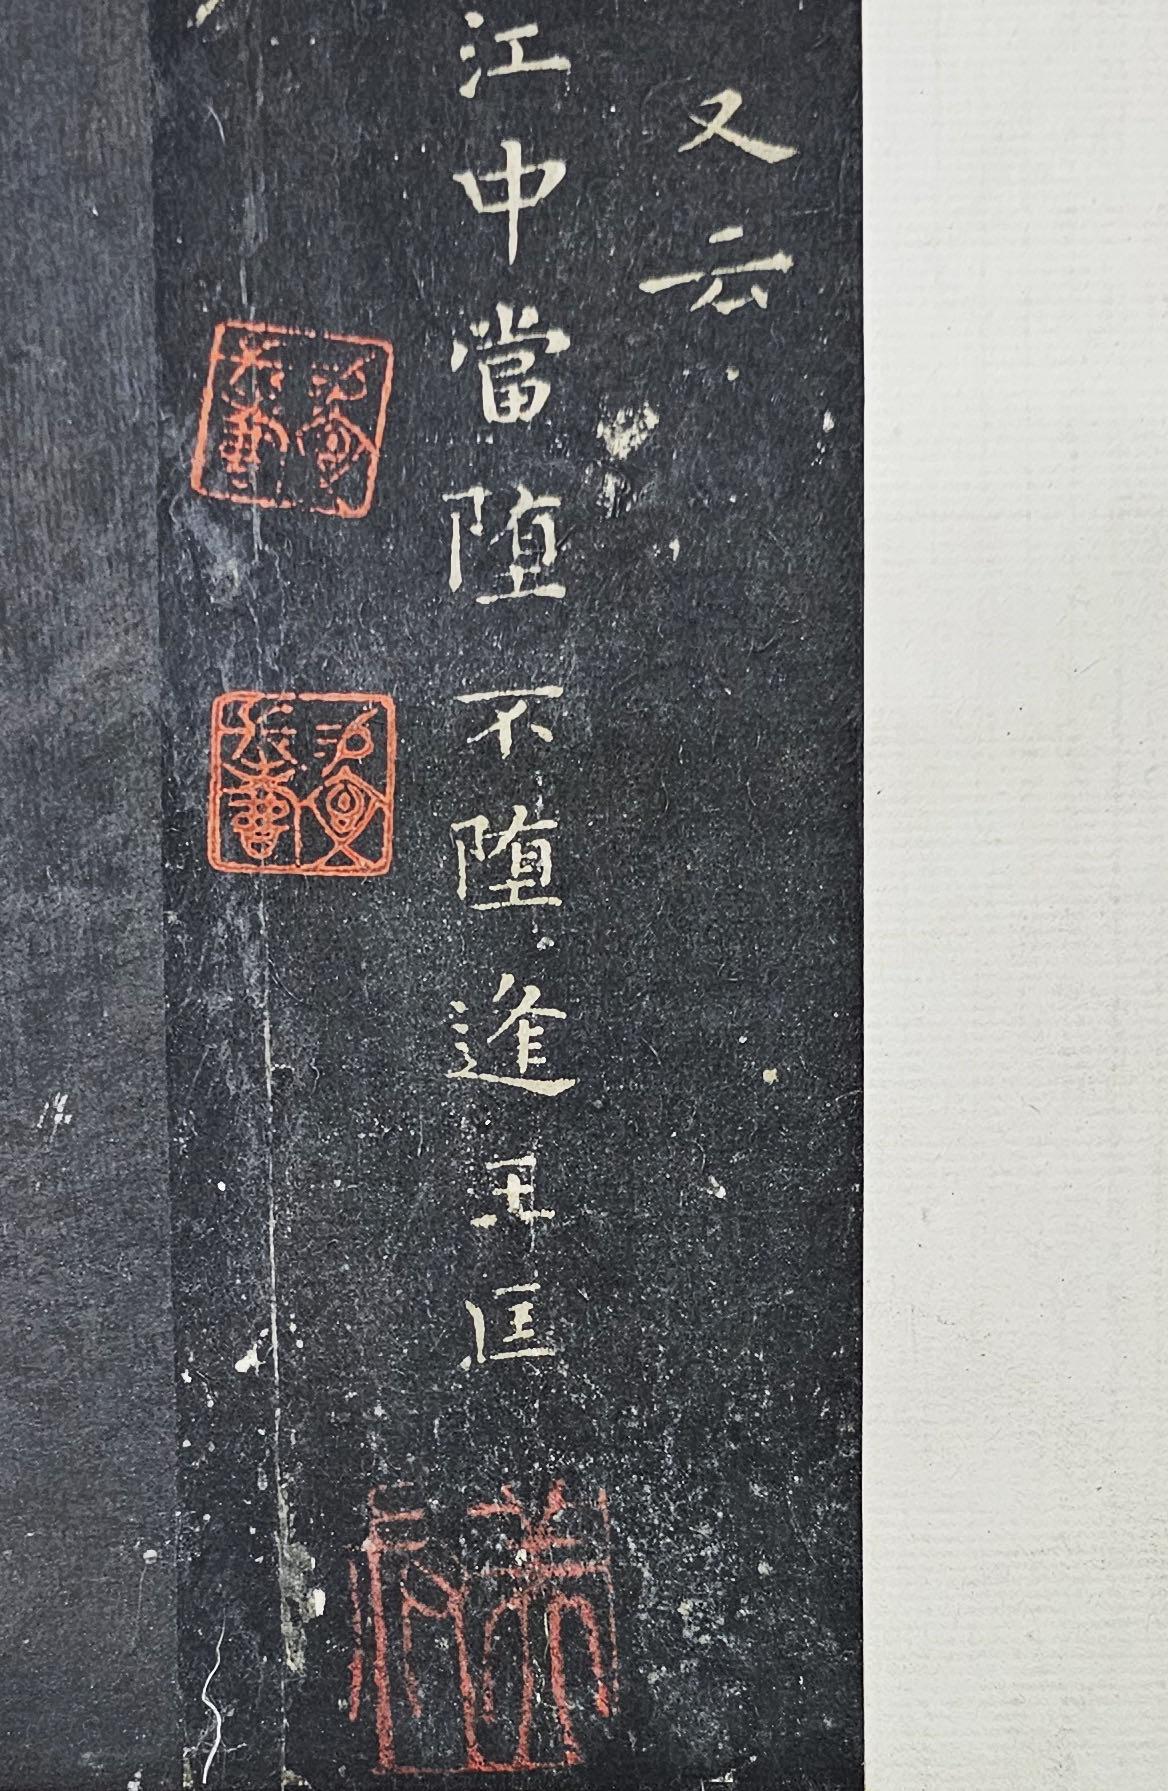 又云
江中當堕不堕逢王匡